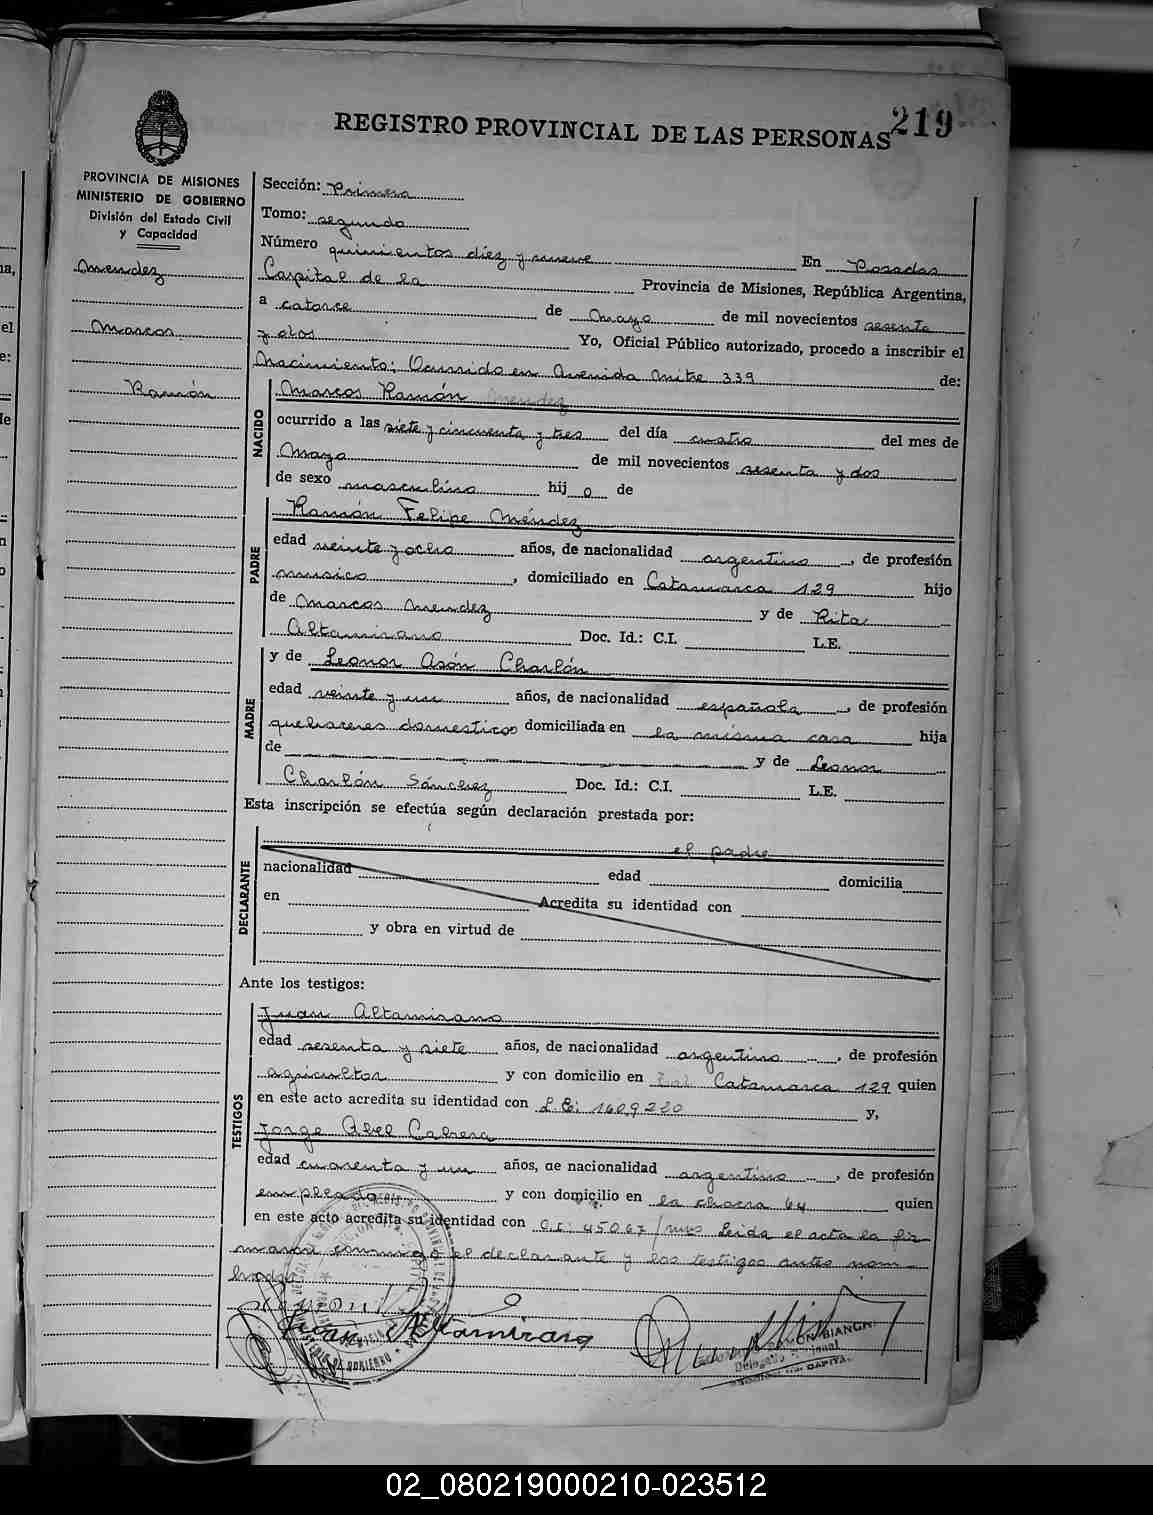 219
REGISTRO PROVINCIAL DE LAS PERSONAS
PROVINCIA DE MISIONES
MINISTERIO DE GOBIERNO
División del Estado Civil
y Capacidad
Mendez
Marcos
Ramón
Sección: Primera
Tomo: segundo
Número quinientos diez y nueve En Posadas
Capital de la Provincia de Misiones, República Argentina,
a catorce de Mayo de mil novecientos sesenta
y dos Yo, Oficial Público autorizado, procedo a inscribir el
Nacimiento: Ocurrido en Avenida Mitre 339 de:
NACIDO
Marcos Ramón Mendez
ocurrido a las siete y cincuenta y tres del día cuatro del mes de
Mayo de mil novecientos sesenta y dos
de sexo masculino hij o de
PADRE
Ramón Felipe Méndez
edad veinte y ocho años, de nacionalidad argentino, de profesión
musico, domiciliado en Catamarca 129 hijo
de Marcos Mendez y de Rita
Altamirano Doc. Id.: C.I. L.E.
MADRE
y de Leonor Asón Charlón
edad veinte y un años, de nacionalidad española, de profesión
quehaceres domesticos domiciliada en la misma casa hija
de y de Leonor
Charlón Sánchez Doc. Id.: C.I. L.E.
Esta inscripción se efectúa según declaración prestada por:
DECLARANTE
el padre
nacionalidad edad domicilia
en Acredita su identidad con
y obra en virtud de
Ante los testigos:
TESTIGOS
Juan Altamirano
edad sesenta y siete años, de nacionalidad argentino, de profesión
agricultor y con domicilio en Catamarca 129 quien
en este acto acredita su identidad con L.E: 1609220 y,
Jorge Abel Cabrera
edad cuarenta y un años, de nacionalidad argentino, de profesión
empleado y con domicilio en la chacra 64 quien
en este acto acredita su identidad con C.I: 45067/mns Leida el acta la fir
maron conmigo el declarante y los testigos antes nom-
brados
Juan Altamirano
RAMON BIANCHI
02_080219000210-023512